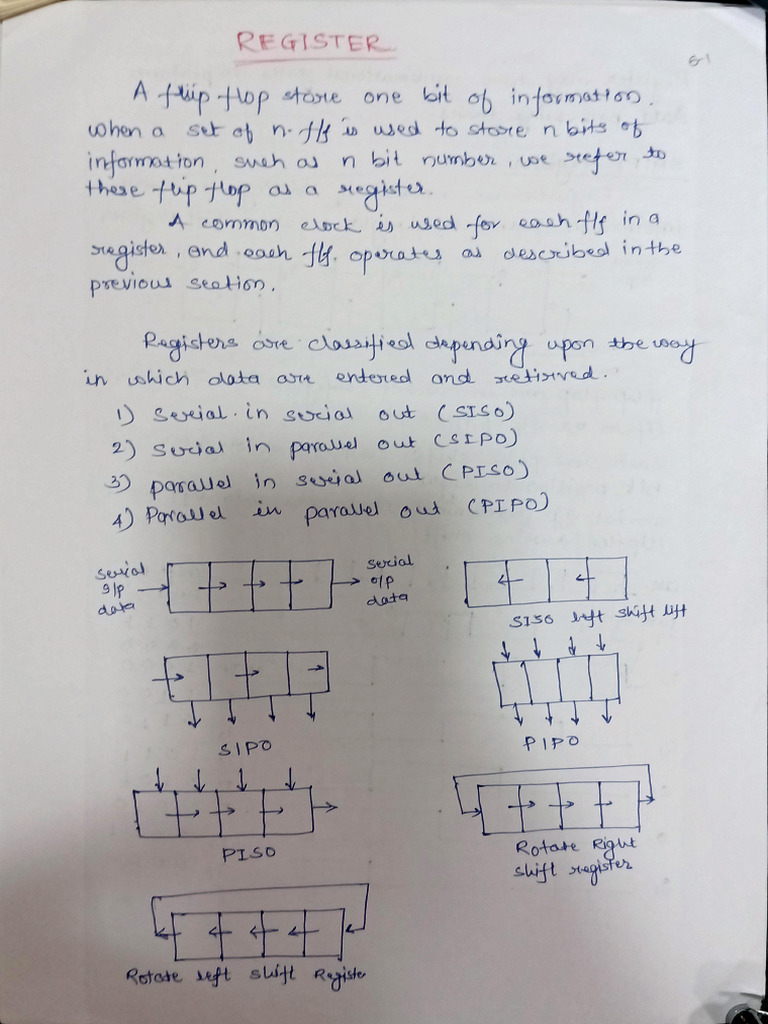 REGISTER
A flip flop store one bit of information.
when a set of n. f/f is used to store n bits of
information, such as n bit number, we refer to
these flip flop as a register.
A common clock is used for each f/f in a
register, and each f/f. operates as described in the
previous section.
Registers are classified depending upon the way
in which data are entered and retirved.
1) Serial in serial out (SISO)
2) Serial in parallel out (SIPO)
3) parallel in serial out (PISO)
4) Parallel in parallel out (PIPO)
serial
I/p
data
serial
o/p
data
SISO left shift lift
SIPO
PIPO
PISO
Rotate Right
shift register
Rotate left shift Registe